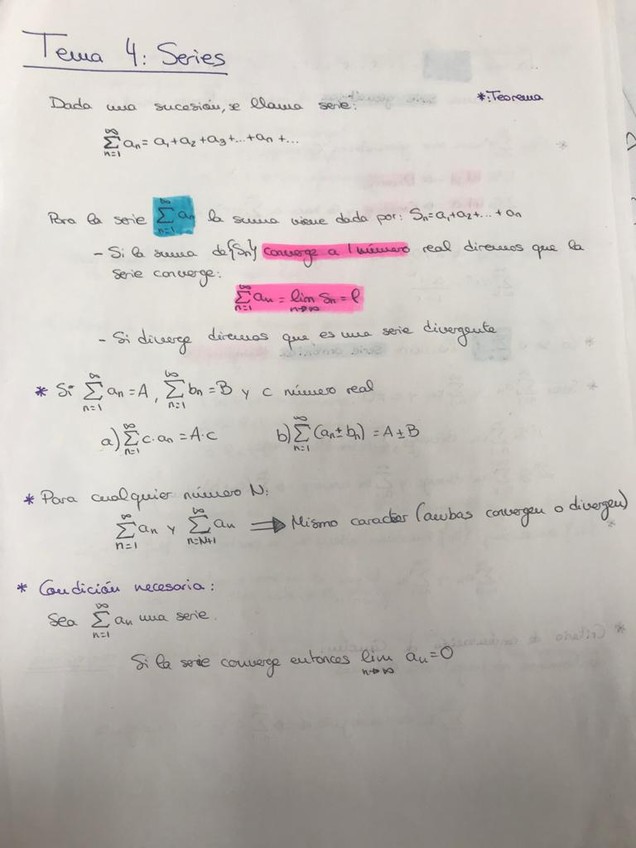 Tema 4: Series
Dada una sucesión, se llama serie:
*:Teorema
∞∑n=1 an = a1+a2+a3+...+an+...
Para la serie ∞∑n=1 an la suma viene dada por: Sn=a1+a2+...+an
- Si la suma de {Sn} converge a 1 número real diremos que la
serie converge:
∞∑n=1 an = lim n→∞ Sn = l
- Si diverge diremos que es una serie divergente
* Si ∞∑n=1 an = A, ∞∑n=1 bn = B y c número real
a) ∞∑n=1 c·an = A·c b) ∞∑n=1 (an±bn) = A±B
* Para cualquier número N:
∞∑n=1 an y ∞∑n=N+1 an ⟹ Mismo caracter (ambas convergen o divergen)
* Condición necesaria:
Sea ∞∑n=1 an una serie.
Si la serie converge entonces lim n→∞ an=0